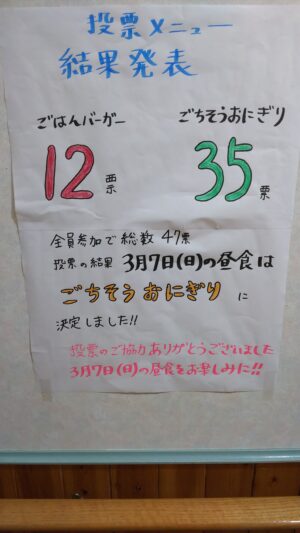 投票メニュー
結果発表
ごはんバーガー ごちそうおにぎり
12票 35票
全員参加で総数 47票
投票の結果 3月7日(日)の昼食は
ごちそうおにぎり に
決定しました!!
投票のご協力ありがとうございました
3月7日(日)の昼食をお楽しみに!!